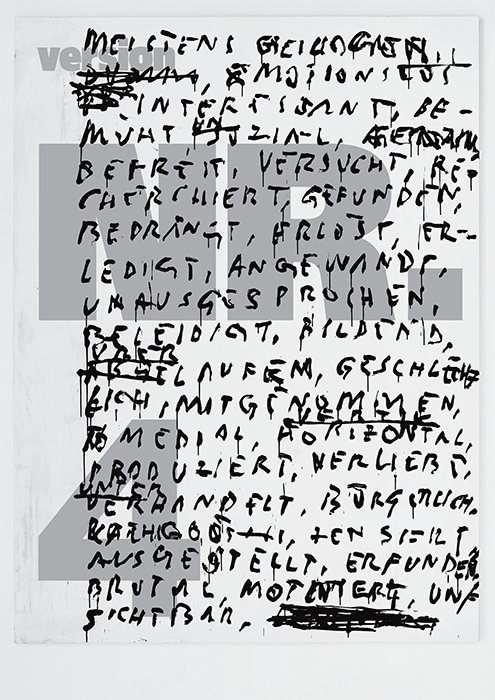 version
NR.
4
MEISTENS GELOGEN,
EMOTIONSLOS
INTERESSANT, BE-
MÜHT SOZIAL,
BEFREIT, VERSUCHT, RE-
CHERCHIERT, GEFUNDEN,
BEDRÄNGT, ERLÖST, ER-
LEDIGT, ANGEWANDT,
UNAUSGESPROCHEN,
BELEIDIGT, BILDEND,
ÜBER
LAUFEN, GESCHLECHT-
LICH, MITGENOMMEN,
MEDIAL, HORIZONTAL,
PRODUZIERT, VERLIEBT,
UNTER
VERHANDELT, BÜRGERLICH,
ZENSIERT
AUSGESTELLT, ERFUNDEN,
BRUTAL, MOTIVIERT, UN/
SICHTBAR,